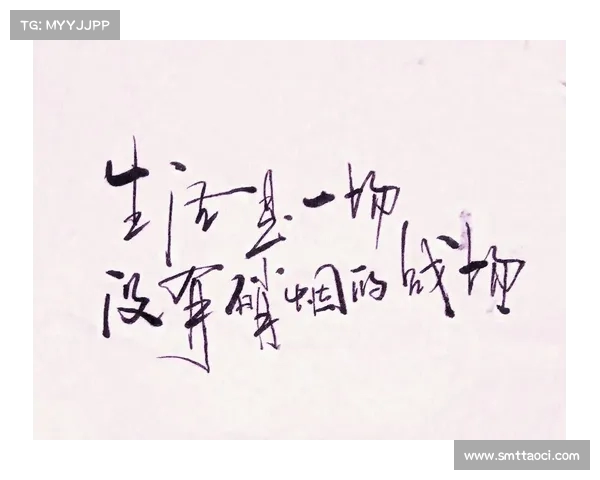 TG: MYYJJPP
生活是一场
没有硝烟的战场
www.smttaoci.com